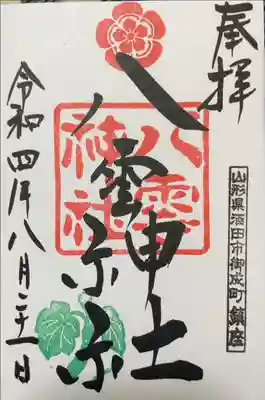 奉拝
山形県酒田市御成町鎮座
八雲神社
八雲
神社
令和四年八月二十一日